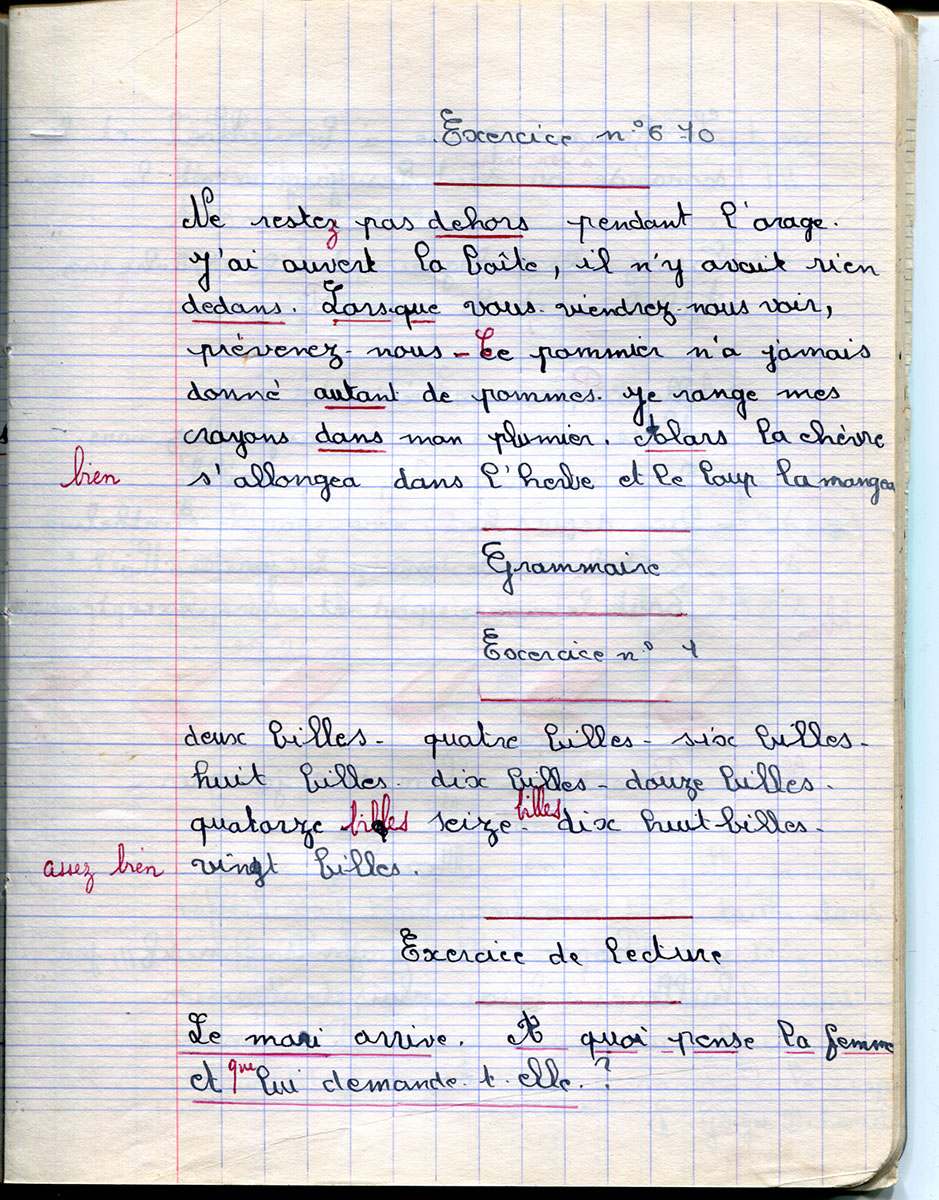 Exercice n° 670
Ne restez pas dehors pendant l'orage.
J'ai ouvert la boîte, il n'y avait rien
dedans. Lorsque vous viendrez nous voir,
prévenez-nous - Le pommier n'a jamais
donné autant de pommes. Je range mes
crayons dans mon plumier. Alors la chèvre
bien s'allongea dans l'herbe et le loup la mangea
Grammaire
Exercice n° 1
deux billes - quatre billes - six billes -
huit billes. dix billes - douze billes.
quatorze billes seize billes dix huit billes.
assez bien vingt billes.
Exercice de lecture
Le mari arrive. A quoi pense la femme
et que lui demande.t.elle.?